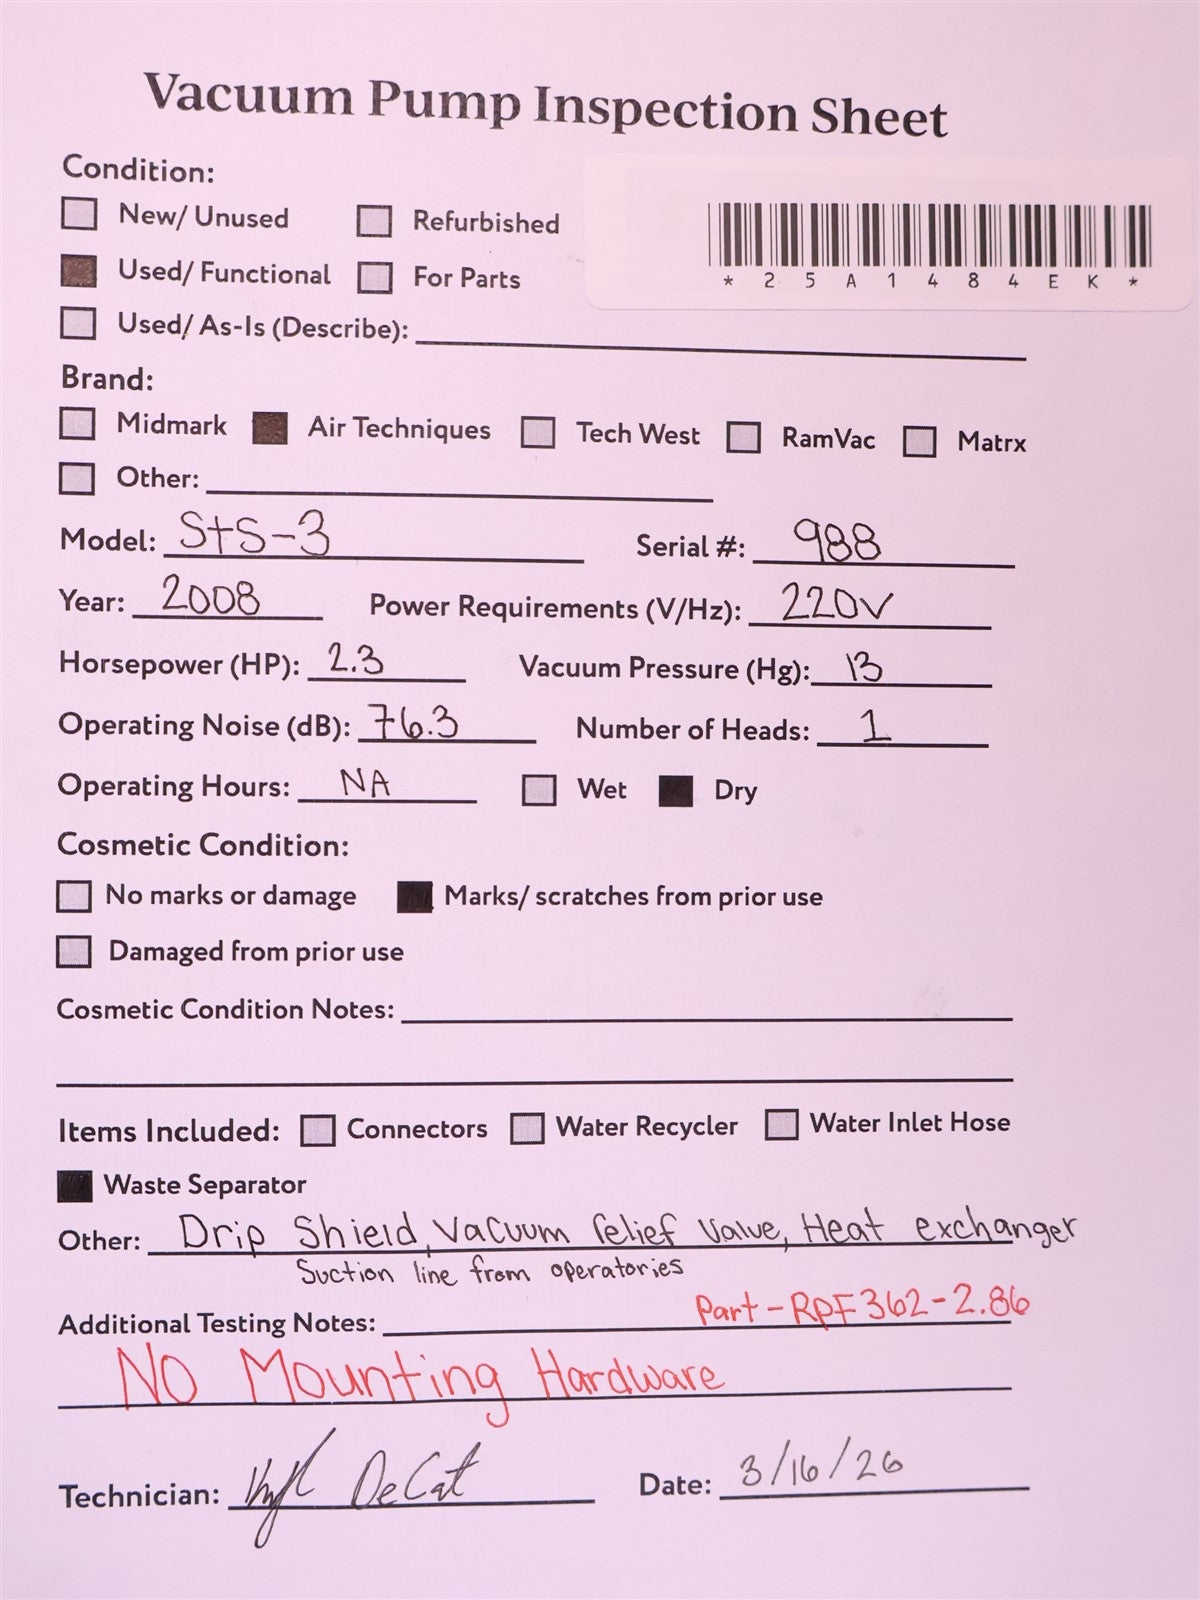 Vacuum Pump Inspection Sheet
Condition:
New/ Unused Refurbished
* 2 5 A 1 4 8 4 E K *
Used/ Functional For Parts
Used/ As-Is (Describe):
Brand:
Midmark Air Techniques Tech West RamVac Matrx
Other:
Model: StS-3 Serial #: 988
Year: 2008 Power Requirements (V/Hz): 220V
Horsepower (HP): 2.3 Vacuum Pressure (Hg): 13
Operating Noise (dB): 76.3 Number of Heads: 1
Operating Hours: NA Wet Dry
Cosmetic Condition:
No marks or damage Marks/ scratches from prior use
Damaged from prior use
Cosmetic Condition Notes:
Items Included: Connectors Water Recycler Water Inlet Hose
Waste Separator
Other: Drip Shield, Vacuum relief valve, Heat exchanger
Suction line from operatories
Additional Testing Notes: Part-RPF362-2.86
NO Mounting Hardware
Technician: DeCat Date: 3/16/26